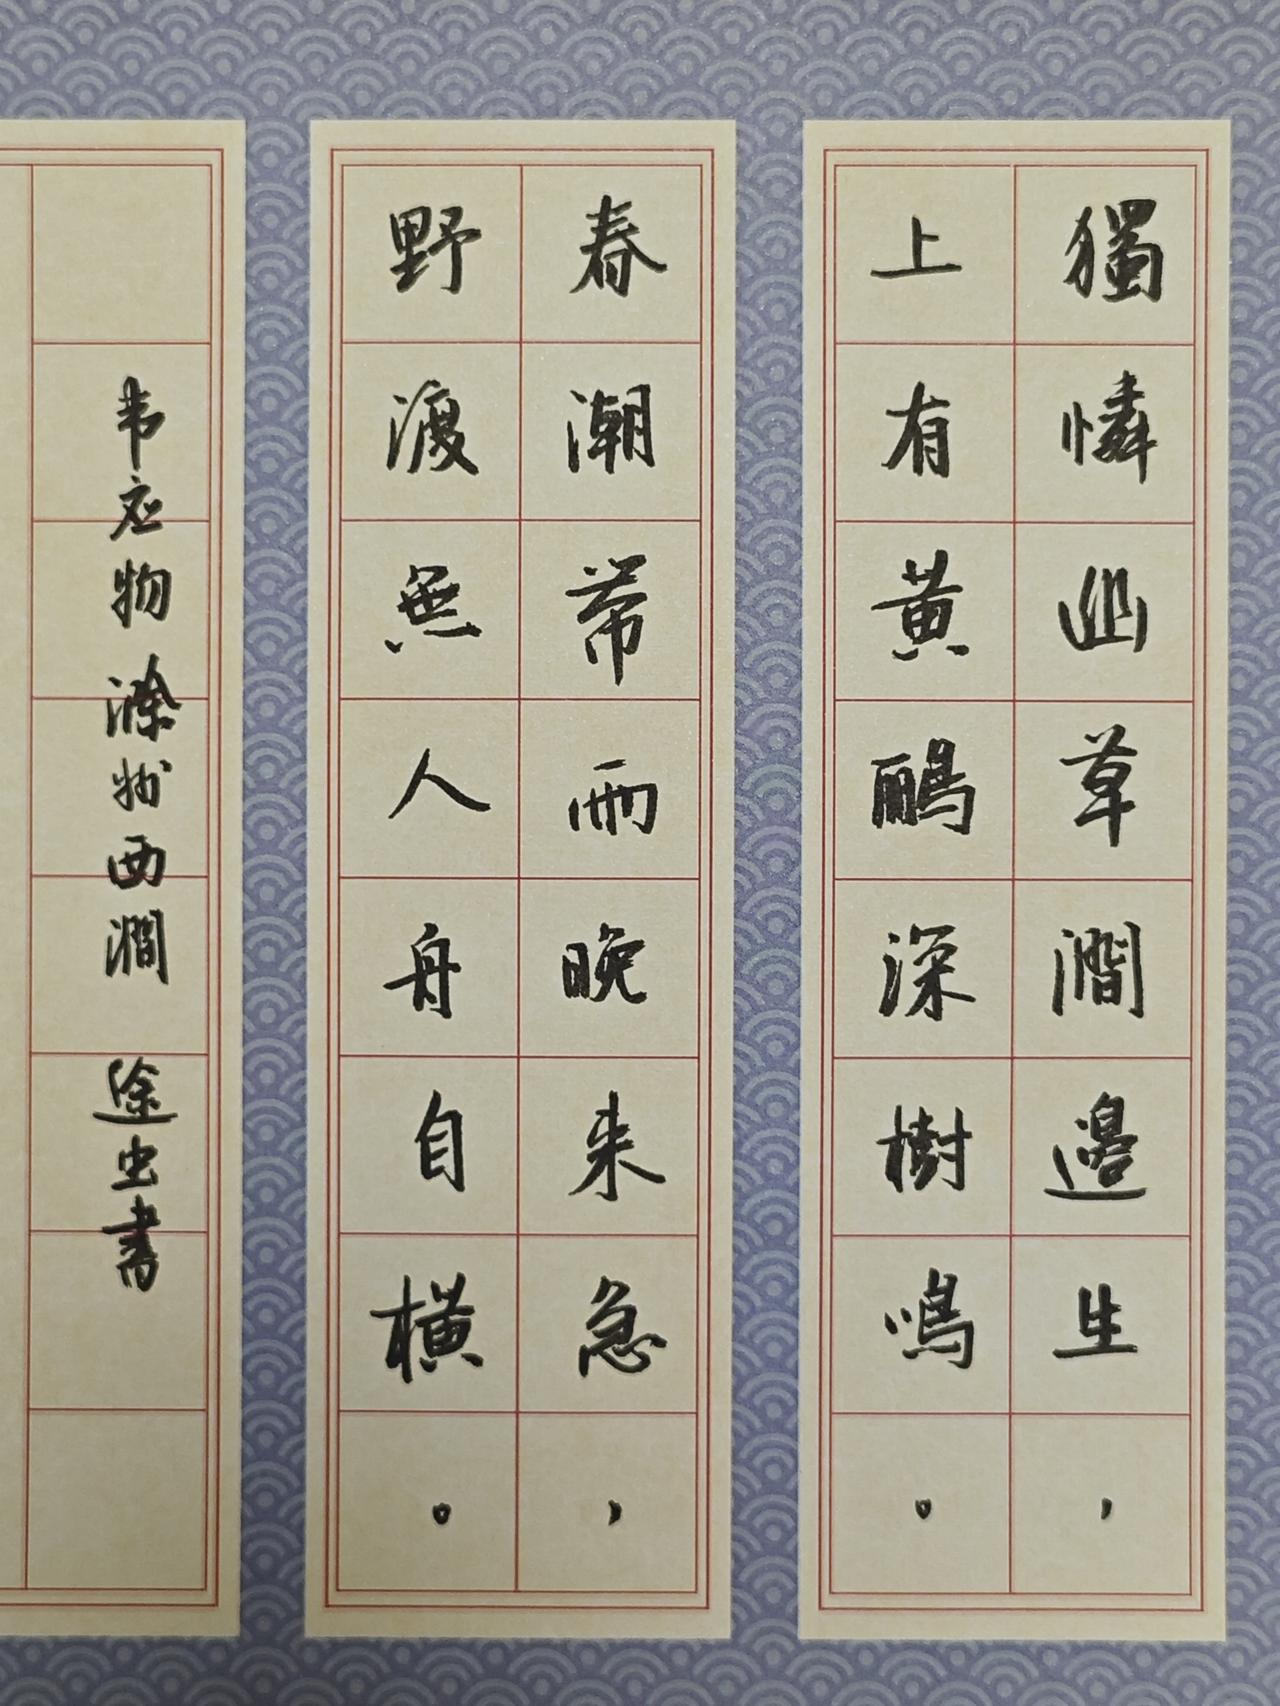 獨憐幽草澗邊生，
上有黃鸝深樹鳴。
春潮帶雨晚来急，
野渡無人舟自横。
韦应物滁州西澗 途虫書